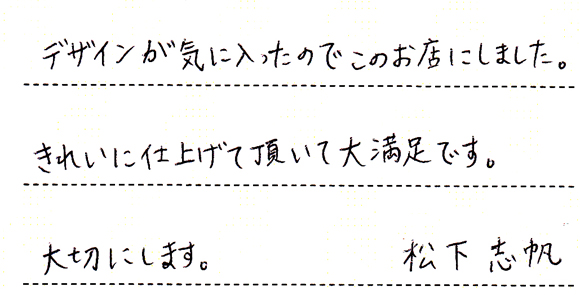 デザインが気に入ったのでこのお店にしました。
きれいに仕上げて頂いて大満足です。
大切にします。 松下 志帆